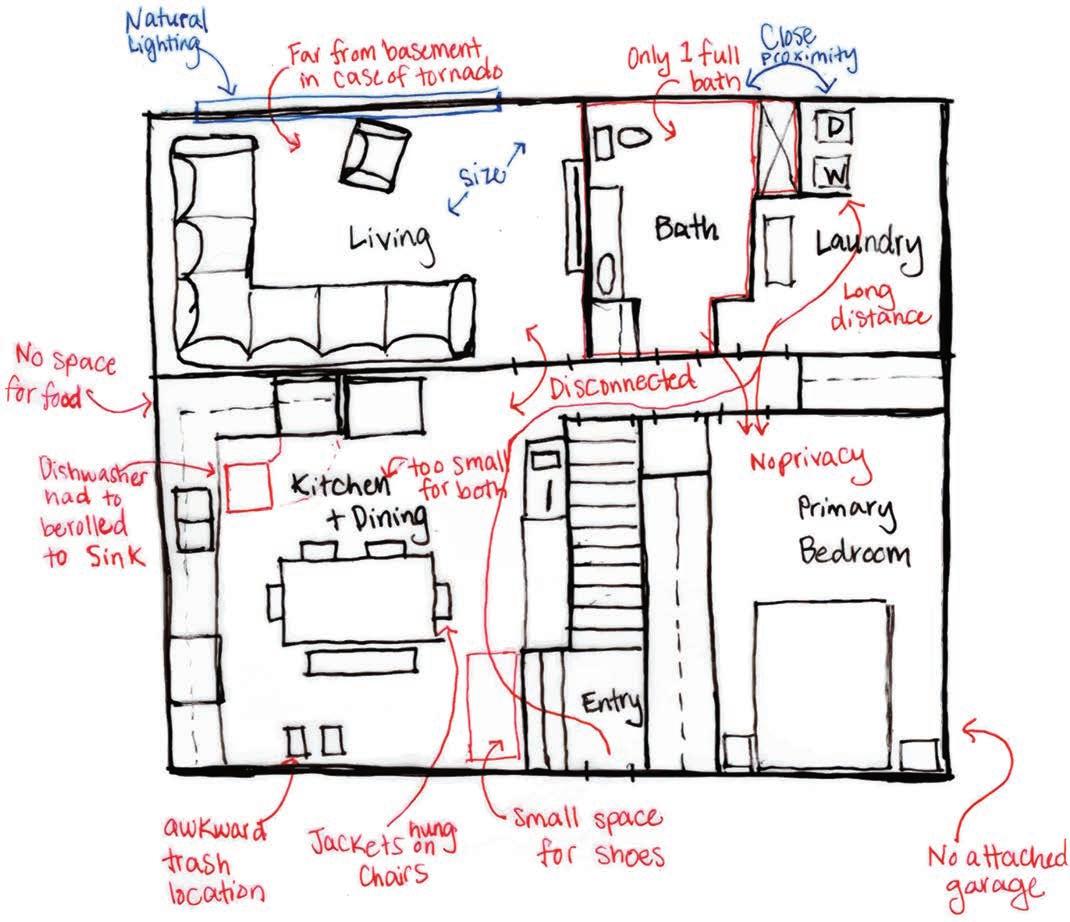 Natural
Lighting
Far from basement
in case of tornado
Only 1 full
bath
Close
proximity
size
Living
Bath
D
W
Laundry
Long
distance
No space
for food
Disconnected
Dishwasher
had to
be rolled
to Sink
Kitchen
+ Dining
too small
for both
No privacy
Primary
Bedroom
Entry
awkward
trash
location
Jackets hung
on
Chairs
Small space
for shoes
No attached
garage